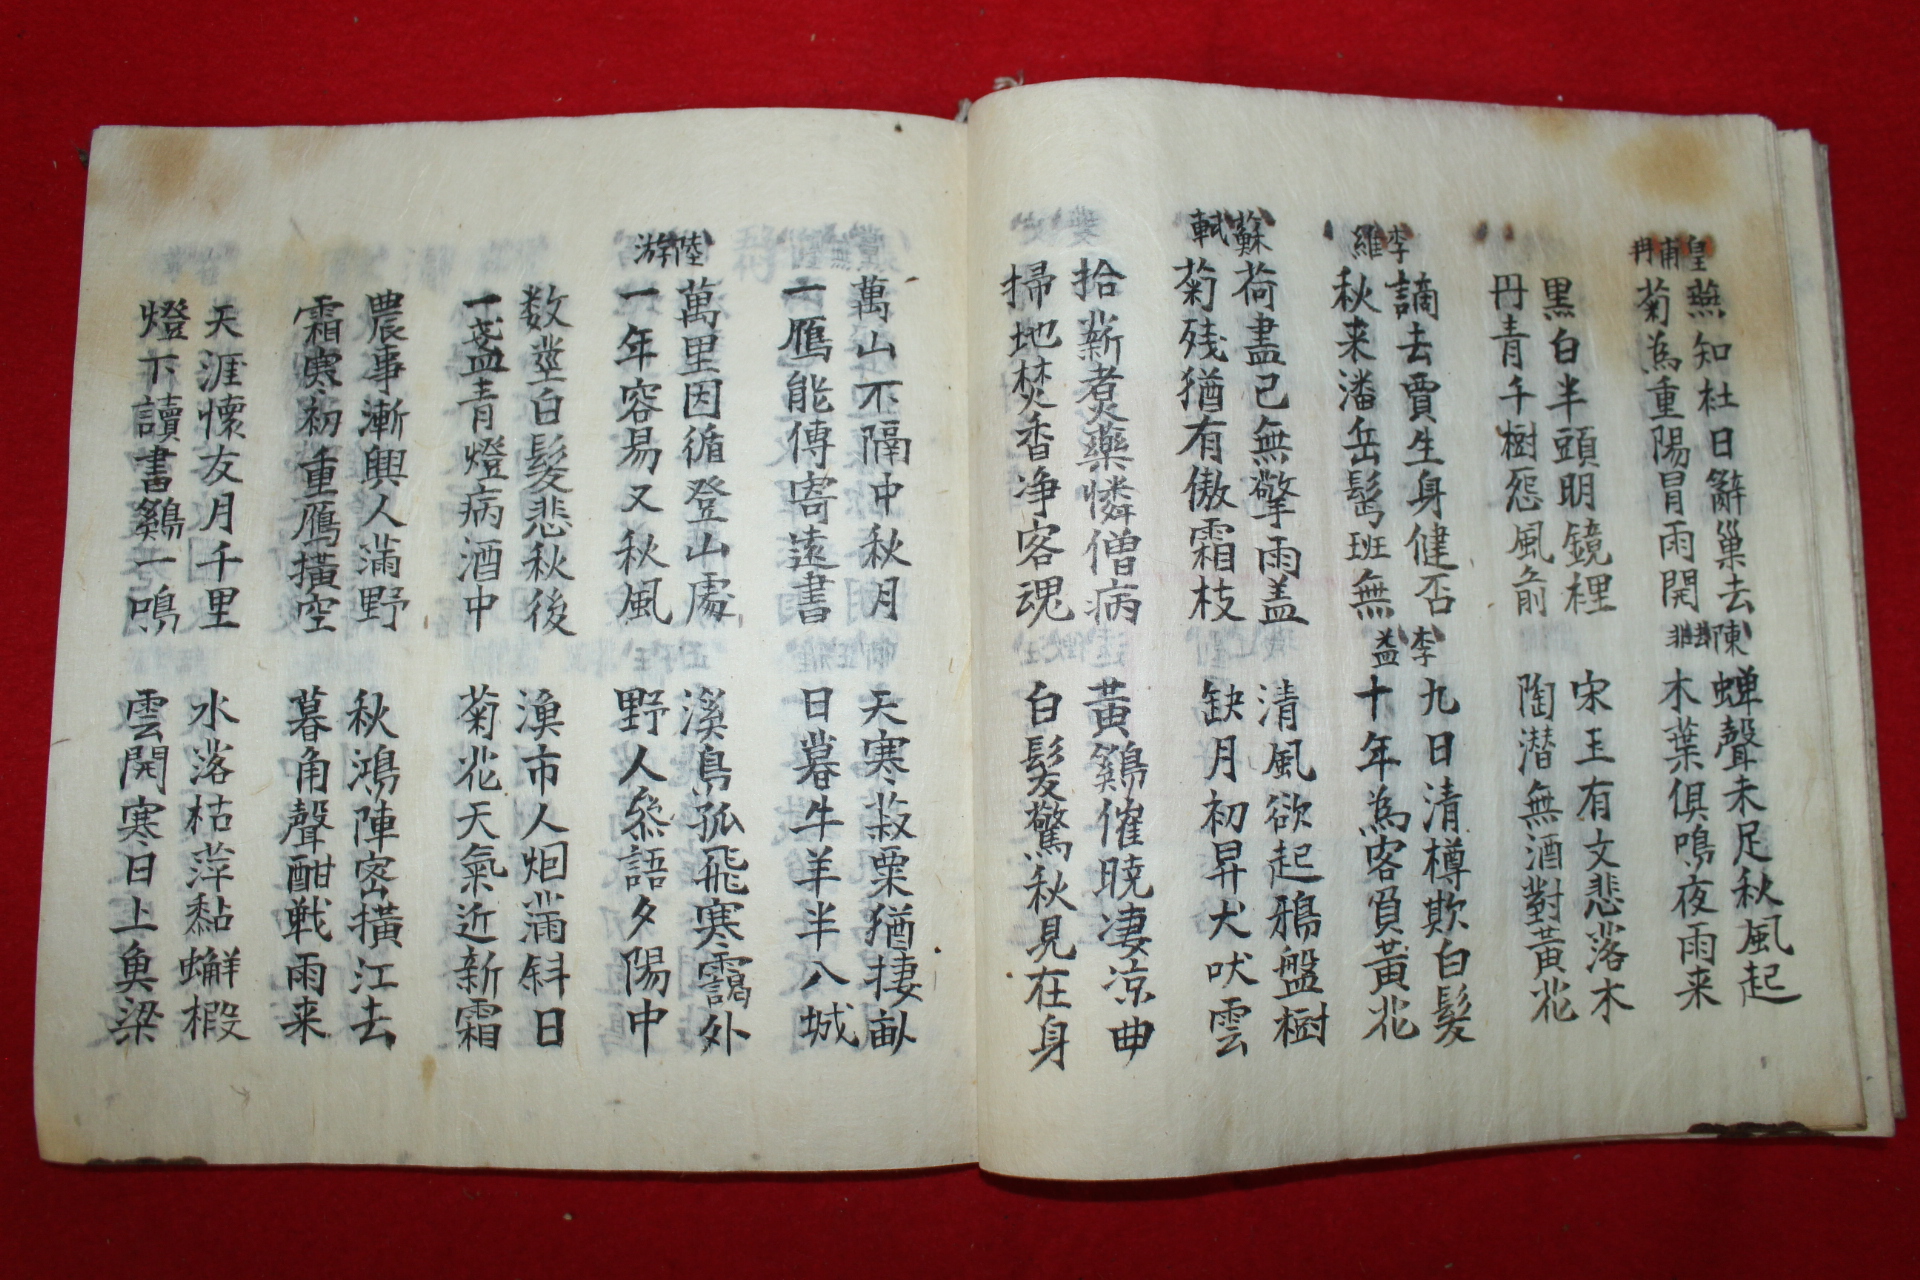 皇甫冉
燕知杜日辭巢去
菊為重陽冒雨開
陳
蟬聲未足秋風起
木葉俱鳴夜雨来
黑白半頭明鏡裡
丹青千樹怨風前
宋玉有文悲落木
陶潜無酒對黃花
李維
謫去賈生身健否
秋来潘岳鬂班無
李益
九日清樽欺白髮
十年為客負黃花
蘇軾
荷盡已無擎雨盖
菊残猶有傲霜枝
清風欲起鴉盤樹
缺月初昇犬吠雲
拾薪煮藥憐僧病
掃地焚香净客魂
黃鷄催曉凄凉曲
白髮驚秋見在身
萬山不隔中秋月
一鴈能傳寄遠書
天寒菽粟猶捿畝
日暮牛羊半八城
陸游
萬里因循登山處
一年容易又秋風
溪鳥孤飛寒靄外
野人叅語夕陽中
数莖白髮悲秋後
一盞青燈病酒中
漁市人烟滿斜日
菊花天氣近新霜
農事漸興人滿野
霜寒初重鴈橫空
秋鴻陣密橫江去
暮角聲酣戰雨来
天涯懷友月千里
燈下讀書鷄一鳴
水落枯萍黏蠏椴
雲開寒日上魚梁